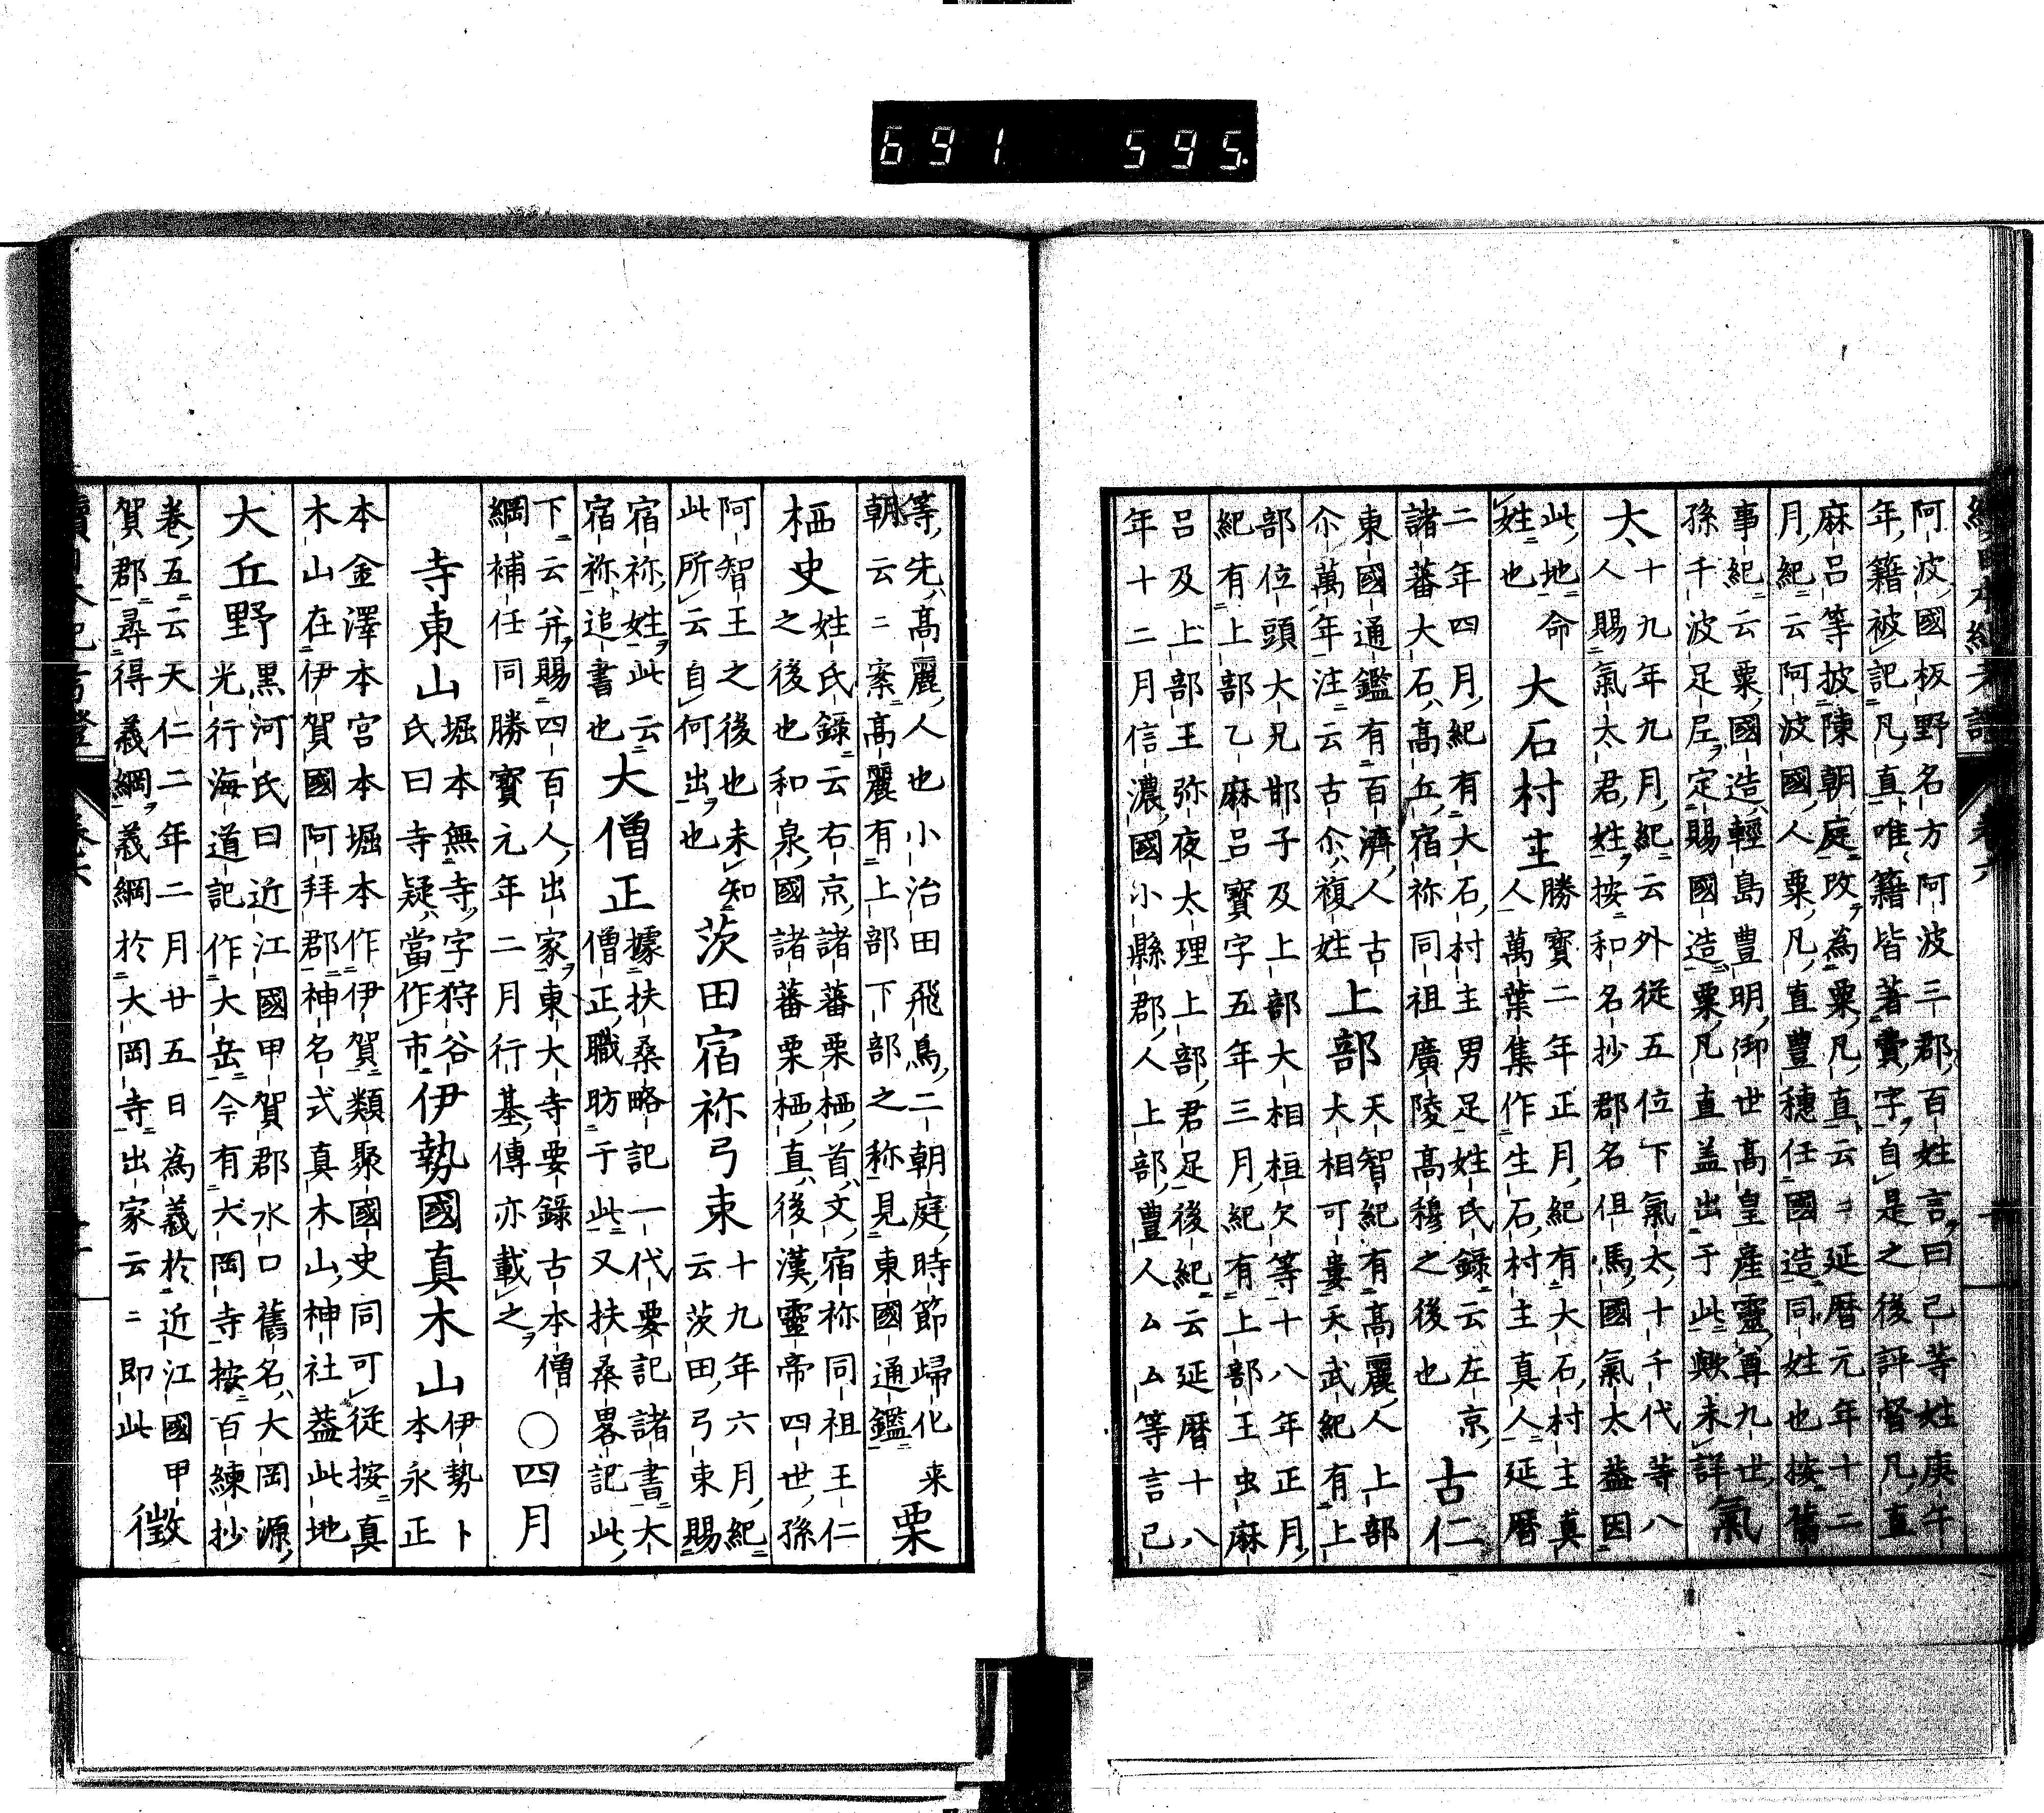 續日本紀考證 卷六
阿波國板野名方阿波三郡百姓言曰己等姓庚午
年籍被記凡直唯籍皆著費字自是之後評督凡直
麻呂等披陳朝庭改為粟凡直云〻延暦元年十二
月紀云阿波國人粟凡直豊穗任國造同姓也按舊
事紀云粟國造輕島豊明御世高皇産靈尊九世
孫千波足尼定賜國造粟凡直盖出于此歟未詳
氣
太
十九年九月紀云外從五位下氣太十千代等八
人賜氣太君姓按和名抄郡名但馬國氣太盖因
此地命
姓也
大石村主
勝寶二年正月紀有大石村主真
人萬葉集作生石村主真人延暦
二年四月紀有大石村主男足姓氏録云左京
諸蕃大石高丘宿祢同祖廣陵高穆之後也
古仁
東國通鑑有百濟人古
尒萬年注云古尒複姓
上部
天智紀有高麗人上部
大相可婁天武紀有上
部位頭大兄邯子及上部大相桓欠等十八年正月
紀有上部乙麻呂寳字五年三月紀有上部王虫麻
呂及上部王弥夜太理上部君足後紀云延暦十八
年十二月信濃國小縣郡人上部豊人ムム等言己
等先髙麗人也小治田飛鳥二朝庭時節歸化来
朝云〻案髙麗有上部下部之称見東國通鑑
栗
栖史
姓氏録云右京諸蕃栗栖首文宿祢同祖王仁
之後也和泉國諸蕃栗栖直後漢靈帝四世孫
阿智王之後也未知
此所云自何出也
茨田宿祢弓束
十九年六月紀
云茨田弓束賜
宿祢姓此云
宿祢追書也
大僧正
據扶桑略記一代要記諸書大
僧正職昉于此又扶桑畧記此
下云并賜四百人出家東大寺要録古本僧
綱補任同勝寳元年二月行基傳亦載之
○四月
寺東山
堀本無寺字狩谷
氏曰寺疑當作市
伊勢國真木山
伊勢卜
本永正
本金澤本宮本堀本作伊賀類聚國史同可從按真
木山在伊賀國阿拜郡神名式真木山神社盖此地
大丘野
黒河氏曰近江國甲賀郡水口舊名大岡源
光行海道記作大岳今有大岡寺按百練抄
卷五云天仁二年二月廿五日為義於近江國甲
賀郡尋得義綱義綱於大岡寺出家云〻即此
徵
續日本紀考證